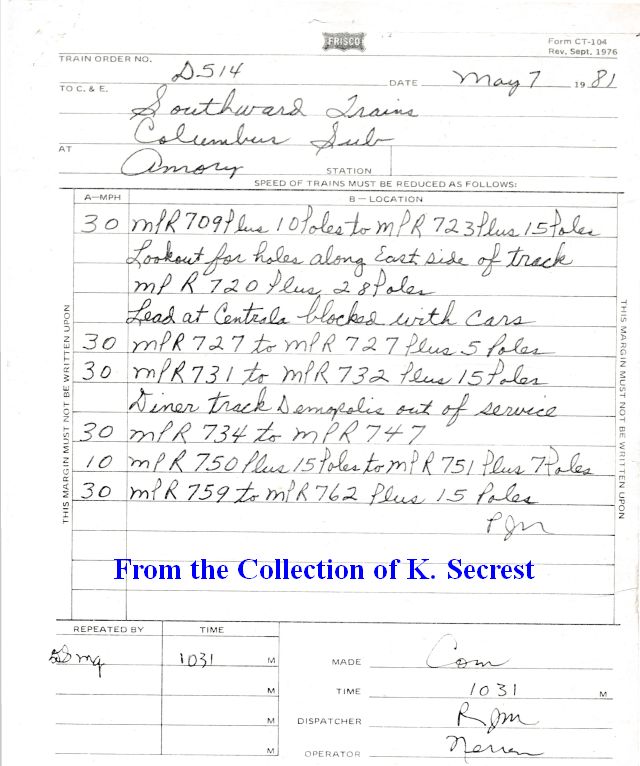 FRISCO
Form CT-104
Rev. Sept. 1976
TRAIN ORDER NO. D514
DATE May 7 1981
TO C. & E. Southward Trains
Columbus Sub
AT Amory STATION
SPEED OF TRAINS MUST BE REDUCED AS FOLLOWS:
A—MPH B — LOCATION
30 MPR 709 Plus 10 Poles to MPR 723 Plus 15 Poles
Lookout for holes along East side of track
MPR 720 Plus 28 Poles
Lead at Centrala blocked with cars
30 MPR 727 to MPR 727 Plus 5 Poles
30 MPR 731 to MPR 732 Plus 15 Poles
Diner track Demopolis out of service
30 MPR 734 to MPR 747
10 MPR 750 Plus 15 Poles to MPR 751 Plus 7 Poles
30 MPR 759 to MPR 762 Plus 15 Poles
RJM
THIS MARGIN MUST NOT BE WRITTEN UPON
THIS MARGIN MUST NOT BE WRITTEN UPON
From the Collection of K. Secrest
REPEATED BY TIME
1031 M
M
M
M
MADE Com
TIME 1031 M
DISPATCHER RJM
OPERATOR